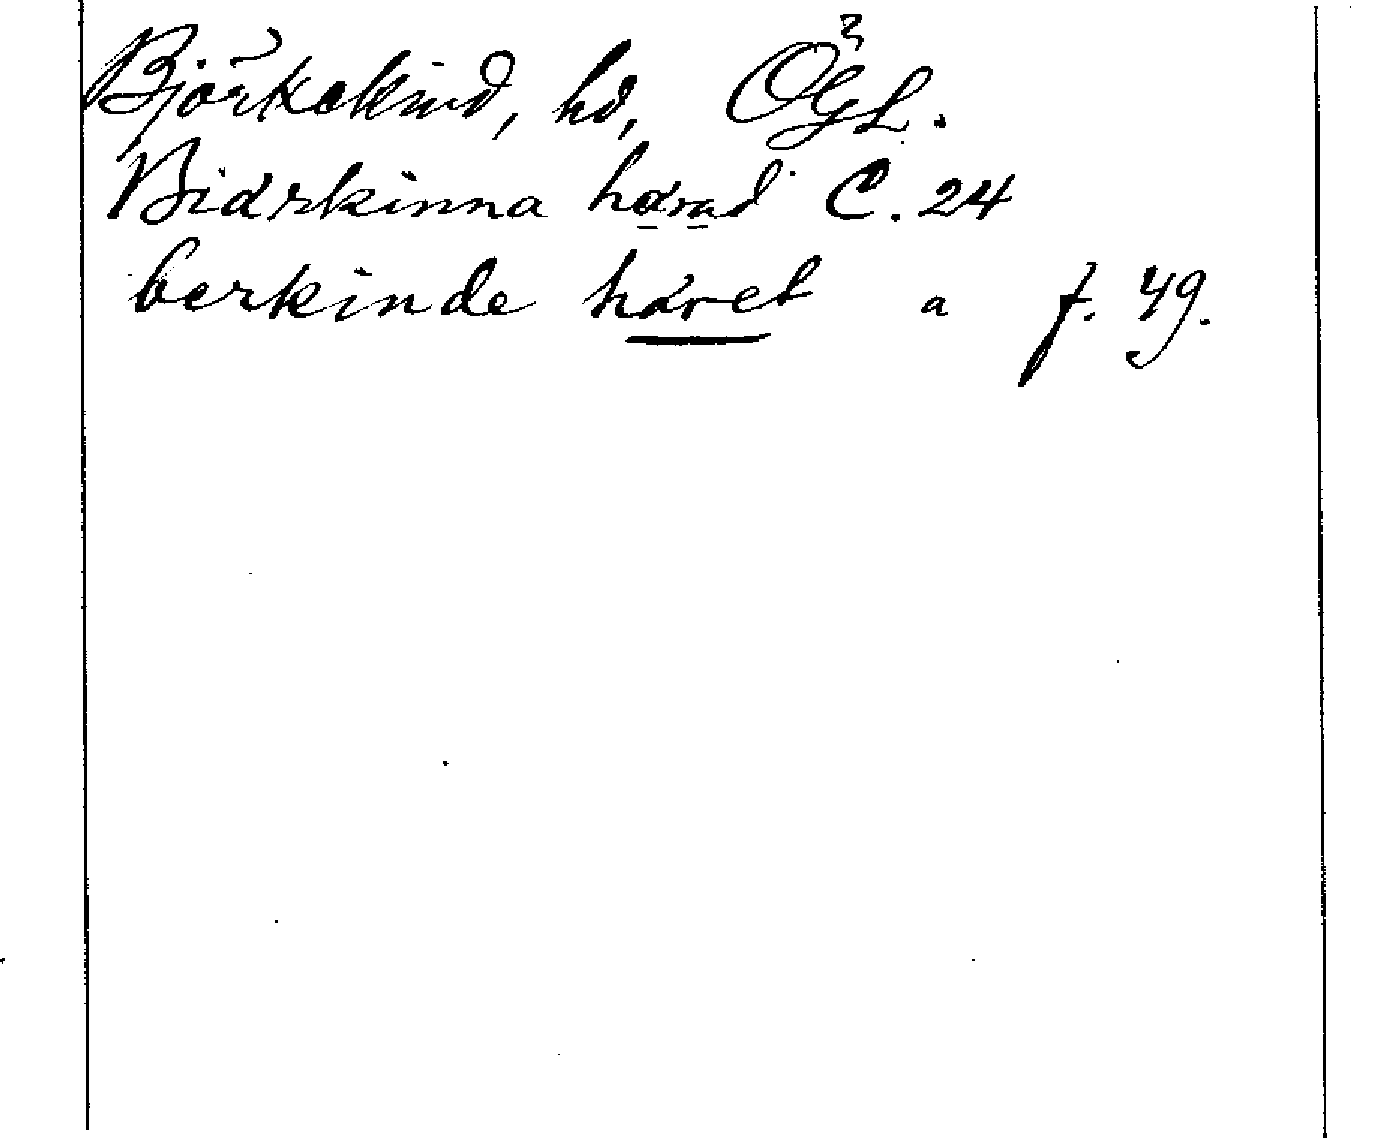 Björkekind, hd, ÖgL.
Biärkinna härad C. 24
berkinde häret a f. 49.